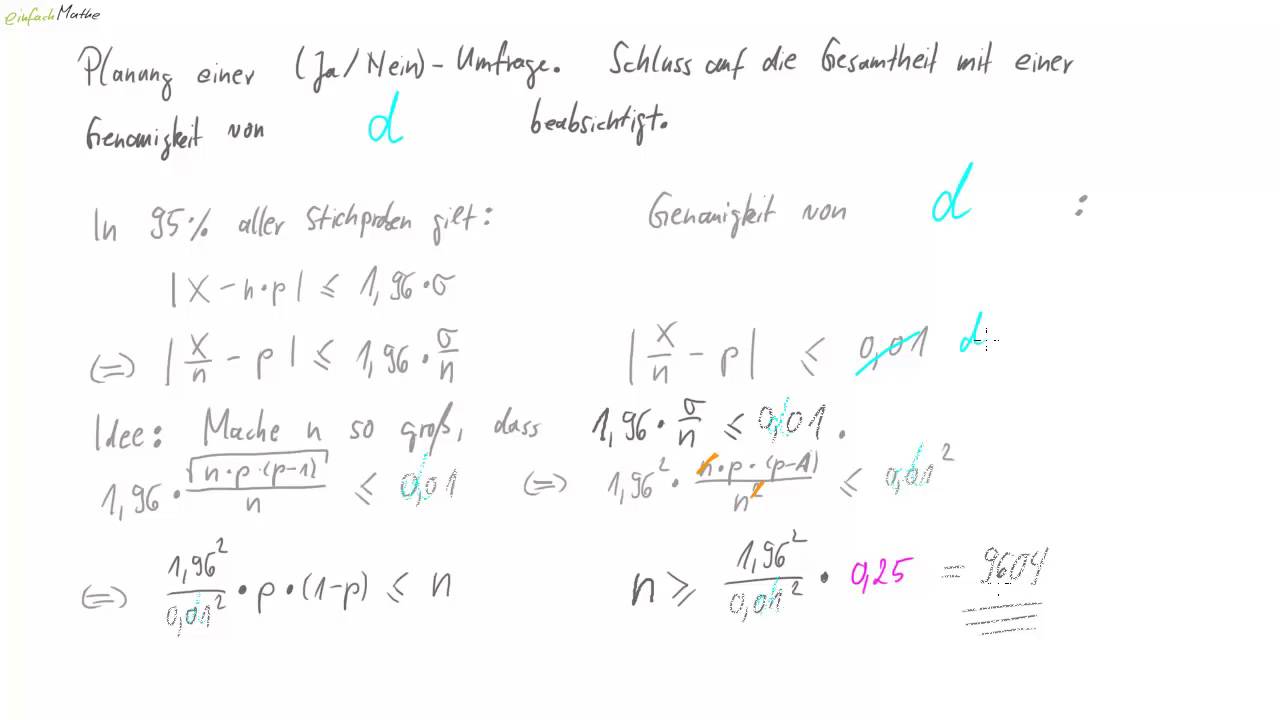 einfachMathe
Planung einer (Ja/Nein)-Umfrage. Schluss auf die Gesamtheit mit einer
Genauigkeit von d beabsichtigt.
In 95% aller Stichproben gilt: Genauigkeit von d :
|X - n·p| ≤ 1,96·σ
(=) |X/n - p| ≤ 1,96·σ/n |X/n - p| ≤ 0,01 d
Idee: Mache n so groß, dass 1,96·σ/n ≤ 0,01.
1,96·√(n·p·(p-1))/n ≤ 0,01 (=) 1,96²·n·p·(p-1)/n² ≤ 0,01²
(=) 1,96²/0,01²·p·(1-p) ≤ n n ≥ 1,96²/0,01²·0,25 = 9604